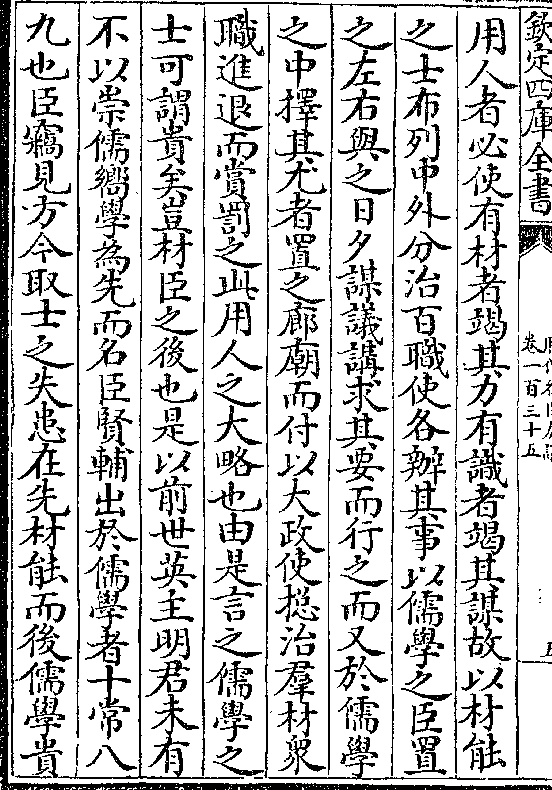 欽定四庫全書
卷一百三十五
用人者必使有材者竭其力有識者竭其謀故以材能
之士布列中外分治百職使各辦其事以儒學之臣置
之左右與之日夕謀議講求其要而行之而又於儒學
之中擇其尤者置之廊廟而付以大政使揔治羣材衆
職進退而賞罰之此用人之大略也由是言之儒學之
士可謂貴矣豈材臣之後也是以前世英主明君未有
不以崇儒嚮學為先而名臣賢輔出於儒學者十常八
九也臣竊見方今取士之失患在先材能而後儒學貴